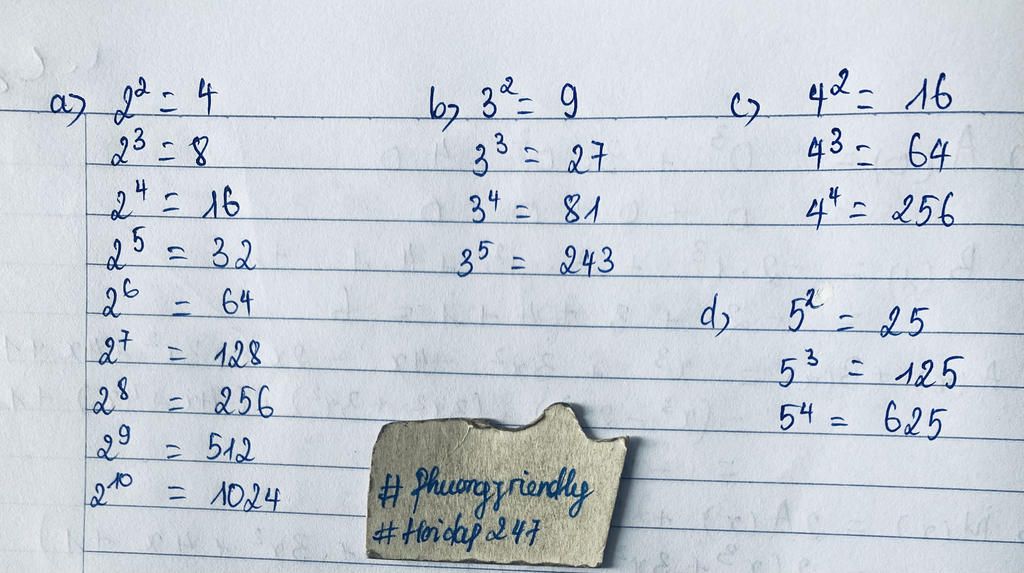 a) 2² = 4
2³ = 8
2⁴ = 16
2⁵ = 32
2⁶ = 64
2⁷ = 128
2⁸ = 256
2⁹ = 512
2¹⁰ = 1024
b) 3² = 9
3³ = 27
3⁴ = 81
3⁵ = 243
c) 4² = 16
4³ = 64
4⁴ = 256
d) 5² = 25
5³ = 125
5⁴ = 625
# phuongfriendly
# Hoidap 247